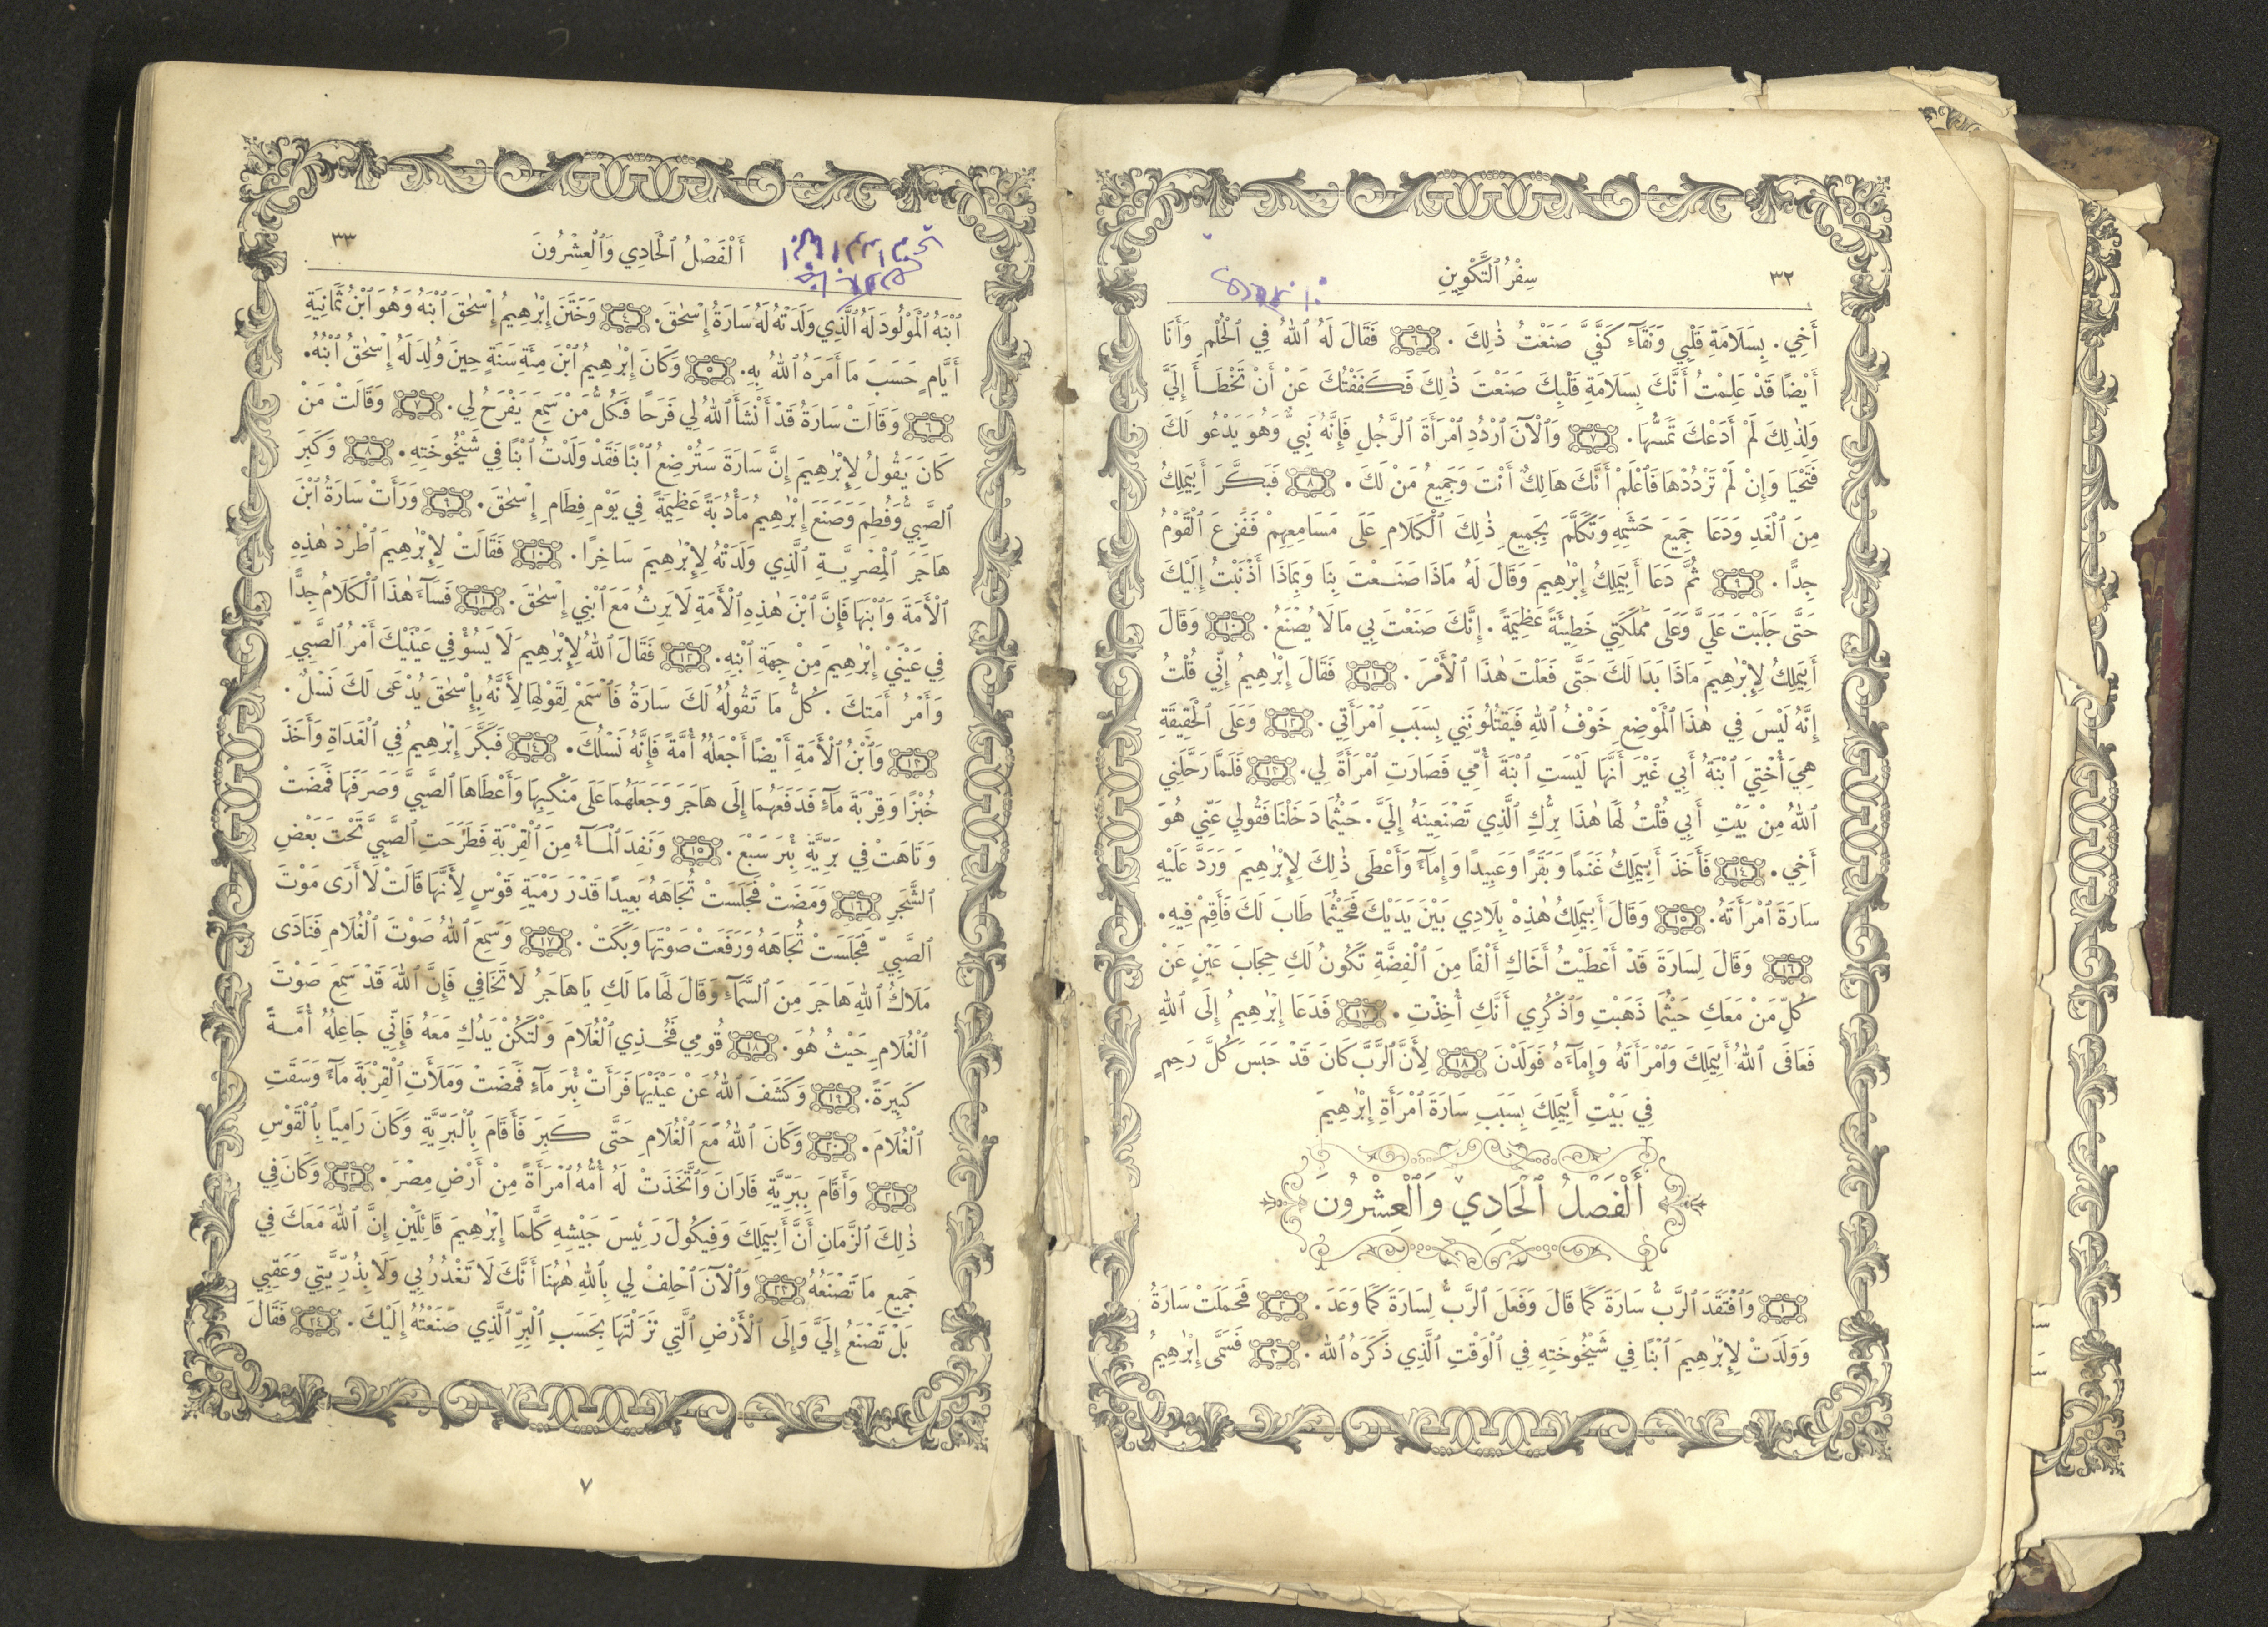 ٣٢
سِفْرُ ٱلتَّكْوِينِ
أَخِي. بِسَلَامَةِ قَلْبِي وَنَقَآءِ كَفَّيَّ صَنَعْتُ ذٰلِكَ . ٦ فَقَالَ لَهُ ٱللهُ فِي ٱلْحُلْمِ وَأَنَا
أَيْضًا قَدْ عَلِمْتُ أَنَّكَ بِسَلَامَةِ قَلْبِكَ صَنَعْتَ ذٰلِكَ فَكَفَفْتُكَ عَنْ أَنْ تَخْطَأَ إِلَيَّ
وَلِذٰلِكَ لَمْ أَدَعْكَ تَمَسُّهَا. ٧ وَٱلْآنَ ٱرْدُدِ ٱمْرَأَةَ ٱلرَّجُلِ فَإِنَّهُ نَبِيٌّ وَهُوَ يَدْعُو لَكَ
فَتَحْيَا وَإِنْ لَمْ تَرْدُدْهَا فَٱعْلَمْ أَنَّكَ هَالِكٌ أَنْتَ وَجَمِيعُ مَنْ لَكَ . ٨ فَبَكَّرَ أَبِيمَلِكُ
مِنَ ٱلْغَدِ وَدَعَا جَمِيعَ حَشَمِهِ وَتَكَلَّمَ بِجَمِيعِ ذٰلِكَ ٱلْكَلَامِ عَلَى مَسَامِعِهِمْ فَفَزِعَ ٱلْقَوْمُ
جِدًّا . ٩ ثُمَّ دَعَا أَبِيمَلِكُ إِبْرٰهِيمَ وَقَالَ لَهُ مَاذَا صَنَعْتَ بِنَا وَبِمَاذَا أَذْنَبْتُ إِلَيْكَ
حَتَّى جَلَبْتَ عَلَيَّ وَعَلَى مَمْلَكَتِي خَطِيئَةً عَظِيمَةً . إِنَّكَ صَنَعْتَ بِي مَا لَا يُصْنَعُ. ١٠ وَقَالَ
أَبِيمَلِكُ لِإِبْرٰهِيمَ مَاذَا بَدَا لَكَ حَتَّى فَعَلْتَ هٰذَا ٱلْأَمْرَ . ١١ فَقَالَ إِبْرٰهِيمُ إِنِّي قُلْتُ
إِنَّهُ لَيْسَ فِي هٰذَا ٱلْمَوْضِعِ خَوْفُ ٱللهِ فَيَقْتُلُونَنِي بِسَبَبِ ٱمْرَأَتِي . ١٢ وَعَلَى ٱلْحَقِيقَةِ
هِيَ أُخْتِيَ ٱبْنَةُ أَبِي غَيْرَ أَنَّهَا لَيْسَتِ ٱبْنَةَ أُمِّي فَصَارَتِ ٱمْرَأَةً لِي. ١٣ فَلَمَّا رَحَّلَنِي
ٱللهُ مِنْ بَيْتِ أَبِي قُلْتُ لَهَا هٰذَا بِرُّكِ ٱلَّذِي تَصْنَعِينَهُ إِلَيَّ. حَيْثُمَا دَخَلْنَا فَقُولِي عَنِّي هُوَ
أَخِي . ١٤ فَأَخَذَ أَبِيمَلِكُ غَنَمًا وَبَقَرًا وَعَبِيدًا وَإِمَآءً وَأَعْطَى ذٰلِكَ لِإِبْرٰهِيمَ وَرَدَّ عَلَيْهِ
سَارَةَ ٱمْرَأَتَهُ. ١٥ وَقَالَ أَبِيمَلِكُ هٰذِهْ بِلَادِي بَيْنَ يَدَيْكَ فَحَيْثُمَا طَابَ لَكَ فَأَقِمْ فِيهِ.
١٦ وَقَالَ لِسَارَةَ قَدْ أَعْطَيْتُ أَخَاكِ أَلْفًا مِنَ ٱلْفِضَّةِ تَكُونُ لَكِ حِجَابَ عَيْنٍ عَنْ
كُلِّ مَنْ مَعَكِ حَيْثُمَا ذَهَبْتِ وَٱذْكُرِي أَنَّكِ أُخِذْتِ . ١٧ فَدَعَا إِبْرٰهِيمُ إِلَى ٱللهِ
فَعَافَى ٱللهُ أَبِيمَلِكَ وَٱمْرَأَتَهُ وَإِمَآءَهُ فَوَلَدْنَ ١٨ لِأَنَّ ٱلرَّبَّ كَانَ قَدْ حَبَسَ كُلَّ رَحِمٍ
فِي بَيْتِ أَبِيمَلِكَ بِسَبَبِ سَارَةَ ٱمْرَأَةِ إِبْرٰهِيمَ
أَلْفَصْلُ ٱلْحَادِي وَٱلْعِشْرُونَ
١ وَٱفْتَقَدَ ٱلرَّبُّ سَارَةَ كَمَا قَالَ وَفَعَلَ ٱلرَّبُّ لِسَارَةَ كَمَا وَعَدَ . ٢ فَحَمَلَتْ سَارَةُ
وَوَلَدَتْ لِإِبْرٰهِيمَ ٱبْنًا فِي شَيْخُوخَتِهِ فِي ٱلْوَقْتِ ٱلَّذِي ذَكَرَهُ ٱلله . ٣ فَسَمَّى إِبْرٰهِيمُ
أَلْفَصْلُ ٱلْحَادِي وَٱلْعِشْرُونَ
٣٣
ٱبْنَهُ ٱلْمَوْلُودَ لَهُ ٱلَّذِي وَلَدَتْهُ لَهُ سَارَةُ إِسْحٰقَ. ٤ وَخَتَنَ إِبْرٰهِيمُ إِسْحٰقَ ٱبْنَهُ وَهُوَ ٱبْنُ ثَمَانِيَةِ
أَيَّامٍ حَسَبَ مَا أَمَرَهُ ٱللهُ بِهِ. ٥ وَكَانَ إِبْرٰهِيمُ ٱبْنَ مِئَةِ سَنَةٍ حِينَ وُلِدَ لَهُ إِسْحٰقُ ٱبْنُهُ.
٦ وَقَالَتْ سَارَةُ قَدْ أَنْشَأَ ٱللهُ لِي فَرَحًا فَكُلُّ مَنْ سَمِعَ يَفْرَحُ لِي. ٧ وَقَالَتْ مَنْ
كَانَ يَقُولُ لِإِبْرٰهِيمَ إِنَّ سَارَةَ سَتُرْضِعُ ٱبْنًا فَقَدْ وَلَدْتُ ٱبْنًا فِي شَيْخُوخَتِهِ . ٨ وَكَبِرَ
ٱلصَّبِيُّ وَفُطِمَ وَصَنَعَ إِبْرٰهِيمُ مَأْدُبَةً عَظِيمَةً فِي يَوْمِ فِطَامِ إِسْحٰقَ. ٩ وَرَأَتْ سَارَةُ ٱبْنَ
هَاجَرَ ٱلْمِصْرِيَّةِ ٱلَّذِي وَلَدَتْهُ لِإِبْرٰهِيمَ سَاخِرًا . ١٠ فَقَالَتْ لِإِبْرٰهِيمَ ٱطْرُدْ هٰذِهِ
ٱلْأَمَةَ وَٱبْنَهَا فَإِنَّ ٱبْنَ هٰذِهِ ٱلْأَمَةِ لَا يَرِثُ مَعَ ٱبْنِي إِسْحٰقَ. ١١ فَسَآءَ هٰذَا ٱلْكَلَامُ جِدًّا
فِي عَيْنَيْ إِبْرٰهِيمَ مِنْ جِهَةِ ٱبْنِهِ. ١٢ فَقَالَ ٱللهُ لِإِبْرٰهِيمَ لَا يَسُؤْ فِي عَيْنَيْكَ أَمْرُ ٱلصَّبِيِّ
وَأَمْرُ أَمَتِكَ . كُلُّ مَا تَقُولُهُ لَكَ سَارَةُ فَٱسْمَعْ لِقَوْلِهَا لِأَنَّهُ بِإِسْحٰقَ يُدْعَى لَكَ نَسْلٌ .
١٣ وَٱبْنُ ٱلْأَمَةِ أَيْضًا أَجْعَلُهُ أُمَّةً فَإِنَّهُ نَسْلُكَ. ١٤ فَبَكَّرَ إِبْرٰهِيمُ فِي ٱلْغَدَاةِ وَأَخَذَ
خُبْزًا وَقِرْبَةَ مَآءٍ فَدَفَعَهُمَا إِلَى هَاجَرَ وَجَعَلَهُمَا عَلَى مَنْكِبِهَا وَأَعْطَاهَا ٱلصَّبِيَّ وَصَرَفَهَا فَمَضَتْ
وَتَاهَتْ فِي بَرِّيَّةِ بِئْرَ سَبْعَ . ١٥ وَنَفِدَ ٱلْمَآءُ مِنَ ٱلْقِرْبَةِ فَطَرَحَتِ ٱلصَّبِيَّ تَحْتَ بَعْضِ
ٱلشَّجَرِ ١٦ وَمَضَتْ فَجَلَسَتْ تُجَاهَهُ بَعِيدًا قَدْرَ رَمْيَةِ قَوْسٍ لِأَنَّهَا قَالَتْ لَا أَرَى مَوْتَ
ٱلصَّبِيِّ فَجَلَسَتْ تُجَاهَهُ وَرَفَعَتْ صَوْتَهَا وَبَكَتْ . ١٧ وَسَمِعَ ٱللهُ صَوْتَ ٱلْغُلَامِ فَنَادَى
مَلَاكُ ٱللهِ هَاجَرَ مِنَ ٱلسَّمَآءِ وَقَالَ لَهَا مَا لَكِ يَا هَاجَرُ لَا تَخَافِي فَإِنَّ ٱللهَ قَدْ سَمِعَ صَوْتَ
ٱلْغُلَامِ حَيْثُ هُوَ. ١٨ قُومِي فَخُذِي ٱلْغُلَامَ وَلْتَكُنْ يَدُكِ مَعَهُ فَإِنِّي جَاعِلُهُ أُمَّةً
كَبِيرَةً. ١٩ وَكَشَفَ ٱللهُ عَنْ عَيْنَيْهَا فَرَأَتْ بِئْرَ مَآءٍ فَمَضَتْ وَمَلَأَتِ ٱلْقِرْبَةَ مَآءً وَسَقَتِ
ٱلْغُلَامَ. ٢٠ وَكَانَ ٱللهُ مَعَ ٱلْغُلَامِ حَتَّى كَبِرَ فَأَقَامَ بِٱلْبَرِّيَّةِ وَكَانَ رَامِيًا بِٱلْقَوْسِ
٢١ وَأَقَامَ بِبَرِّيَّةِ فَارَانَ وَٱتَّخَذَتْ لَهُ أُمُّهُ ٱمْرَأَةً مِنْ أَرْضِ مِصْرَ. ٢٢ وَكَانَ فِي
ذٰلِكَ ٱلزَّمَانِ أَنَّ أَبِيمَلِكَ وَفِيكُولَ رَئِيسَ جَيْشِهِ كَلَّمَا إِبْرٰهِيمَ قَائِلَيْنِ إِنَّ ٱللهَ مَعَكَ فِي
جَمِيعِ مَا تَصْنَعُهُ ٢٣ وَٱلْآنَ ٱحْلِفْ لِي بِٱللهِ هٰهُنَا أَنَّكَ لَا تَغْدُرُ بِي وَلَا بِذُرِّيَّتِي وَعَقِبِي
بَلْ تَصْنَعُ إِلَيَّ وَإِلَى ٱلْأَرْضِ ٱلَّتِي نَزَلْتَهَا بِحَسَبِ ٱلْبِرِّ ٱلَّذِي صَنَعْتُهُ إِلَيْكَ . ٢٤ فَقَالَ
٧